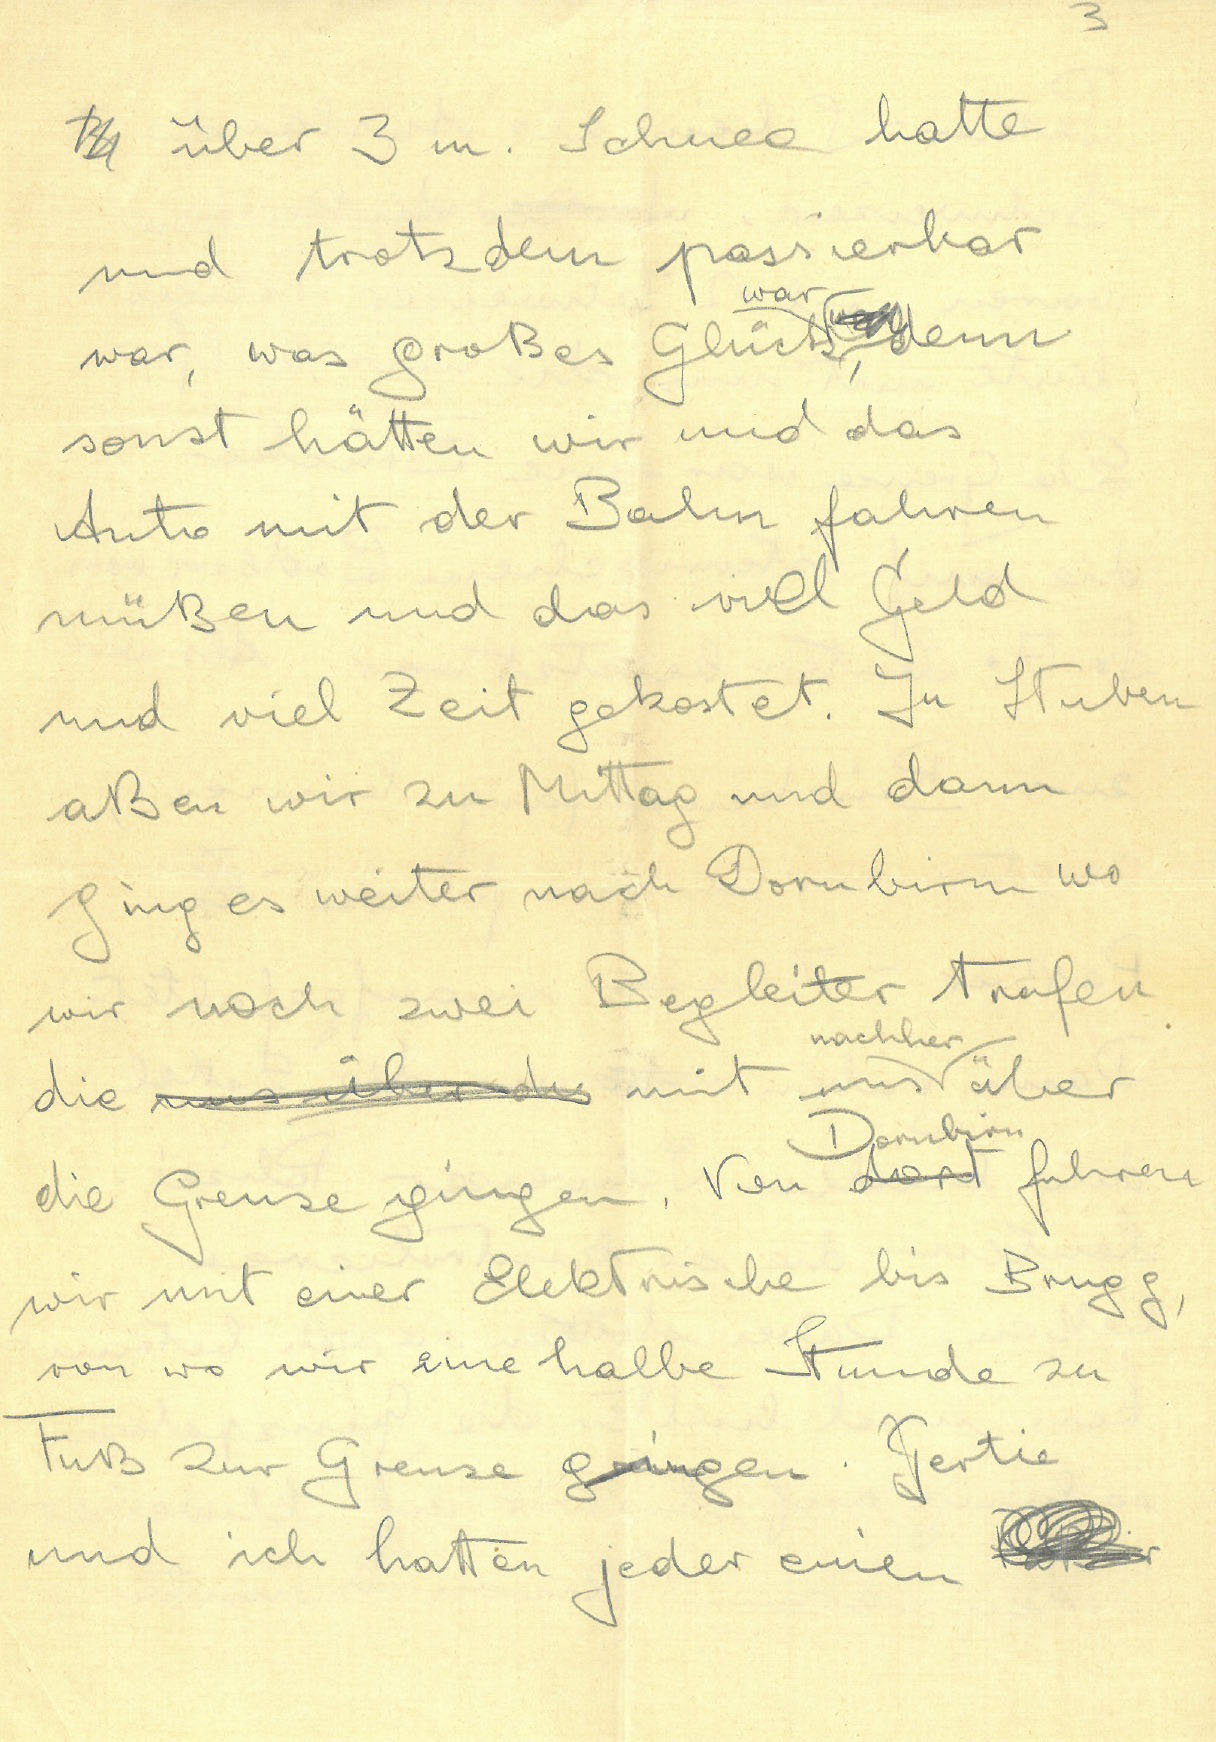 3
über 3 m. Schnee hatte
und trotzdem passierbar
war
war, was großes Glück, denn
sonst hätten wir und das
Auto mit der Bahn fahren
müßen und das viel Geld
und viel Zeit gekostet. In Stuben
aßen wir zu Mittag und dann
ging es weiter nach Dornbirn wo
wir noch zwei Begleiter trafen
nachher
die uns über die mit uns über
Dornbirn
die Grenze gingen. Von dort fuhren
wir mit einer Elektrische bis Brugg,
von wo wir eine halbe Stunde zu
Fuß zur Grenze gingen. Gertie
und ich hatten jeder einen